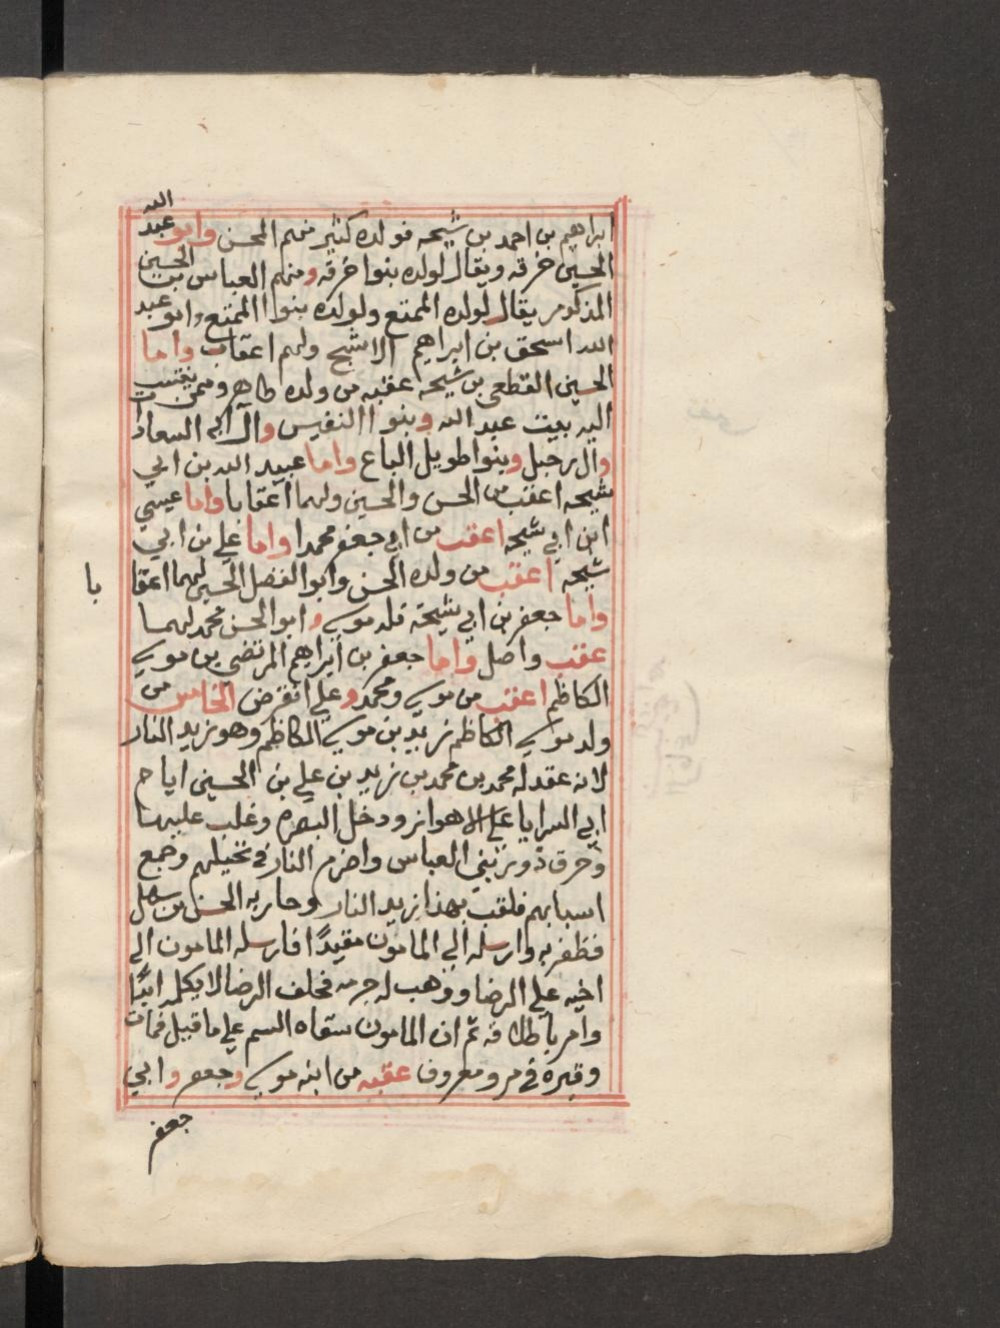 ابراهيم بن احمد بن شيحه فولده كثير منهم المحسن وابو عبد الله
الحسين خرقه ويقال لولده بنوا خرقه ومنهم العباس بن الحسين
المذكور يقال لولده الممتع ولولده بنوا الممتع وابو عبد
الله اسحق بن ابراهيم الاشج ولهم اعقاب واما
الحسين القطعي بن شيحه عقبه من ولده طاهر وممن ينتسب
اليه بيت عبد الله وبنوا النفيس وآل ابي السعادات
وال رحبل وبنوا طويل الباع واما عبيد الله بن ابي
شيحه اعقب من الحسن والحسين ولهما اعقابا واما عيسي
ابن ابي شيحه اعقب من ابي جعفر محمدا واما علي بن ابي
شيحه اعقب من ولده الحسن وابو الفضل الحسين لهما اعقا
با
واما جعفر بن ابي شيحة فله موسي وابو الحسن محمد لهما
عقب واصل واما جعفر بن ابراهيم المرتضي بن موسي
الكاظم اعقب من موسي ومحمد وعلي انقرض الخامس من
ولد موسي الكاظم زيد بن موسي الكاظم وهو زيد النار
لانه عقد له محمد بن محمد بن زيد بن علي بن الحسين ايام
ابي السرايا على الاهواز ودخل البصره وغلب عليها
وحرق دور بني العباس واضرم النار في نخيلهم وجمع
اسبابهم فلقب بهذا زيد النار وحاربه الحسن بن سهل
فظفر به وارسله الي المامون مقيدًا فارسله المامون الي
اخيه علي الرضا ووهب له جرمه فحلف الرضا لا يكلمه ابدًا
وامر باطلاقه ثم ان المامون سقاه السم علي ما قيل فمات
وقبره في مرو معروف عقبه من ابنه موسي وجعفر وابي
جعفر